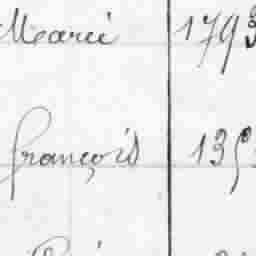 Marie 1793
françois 135